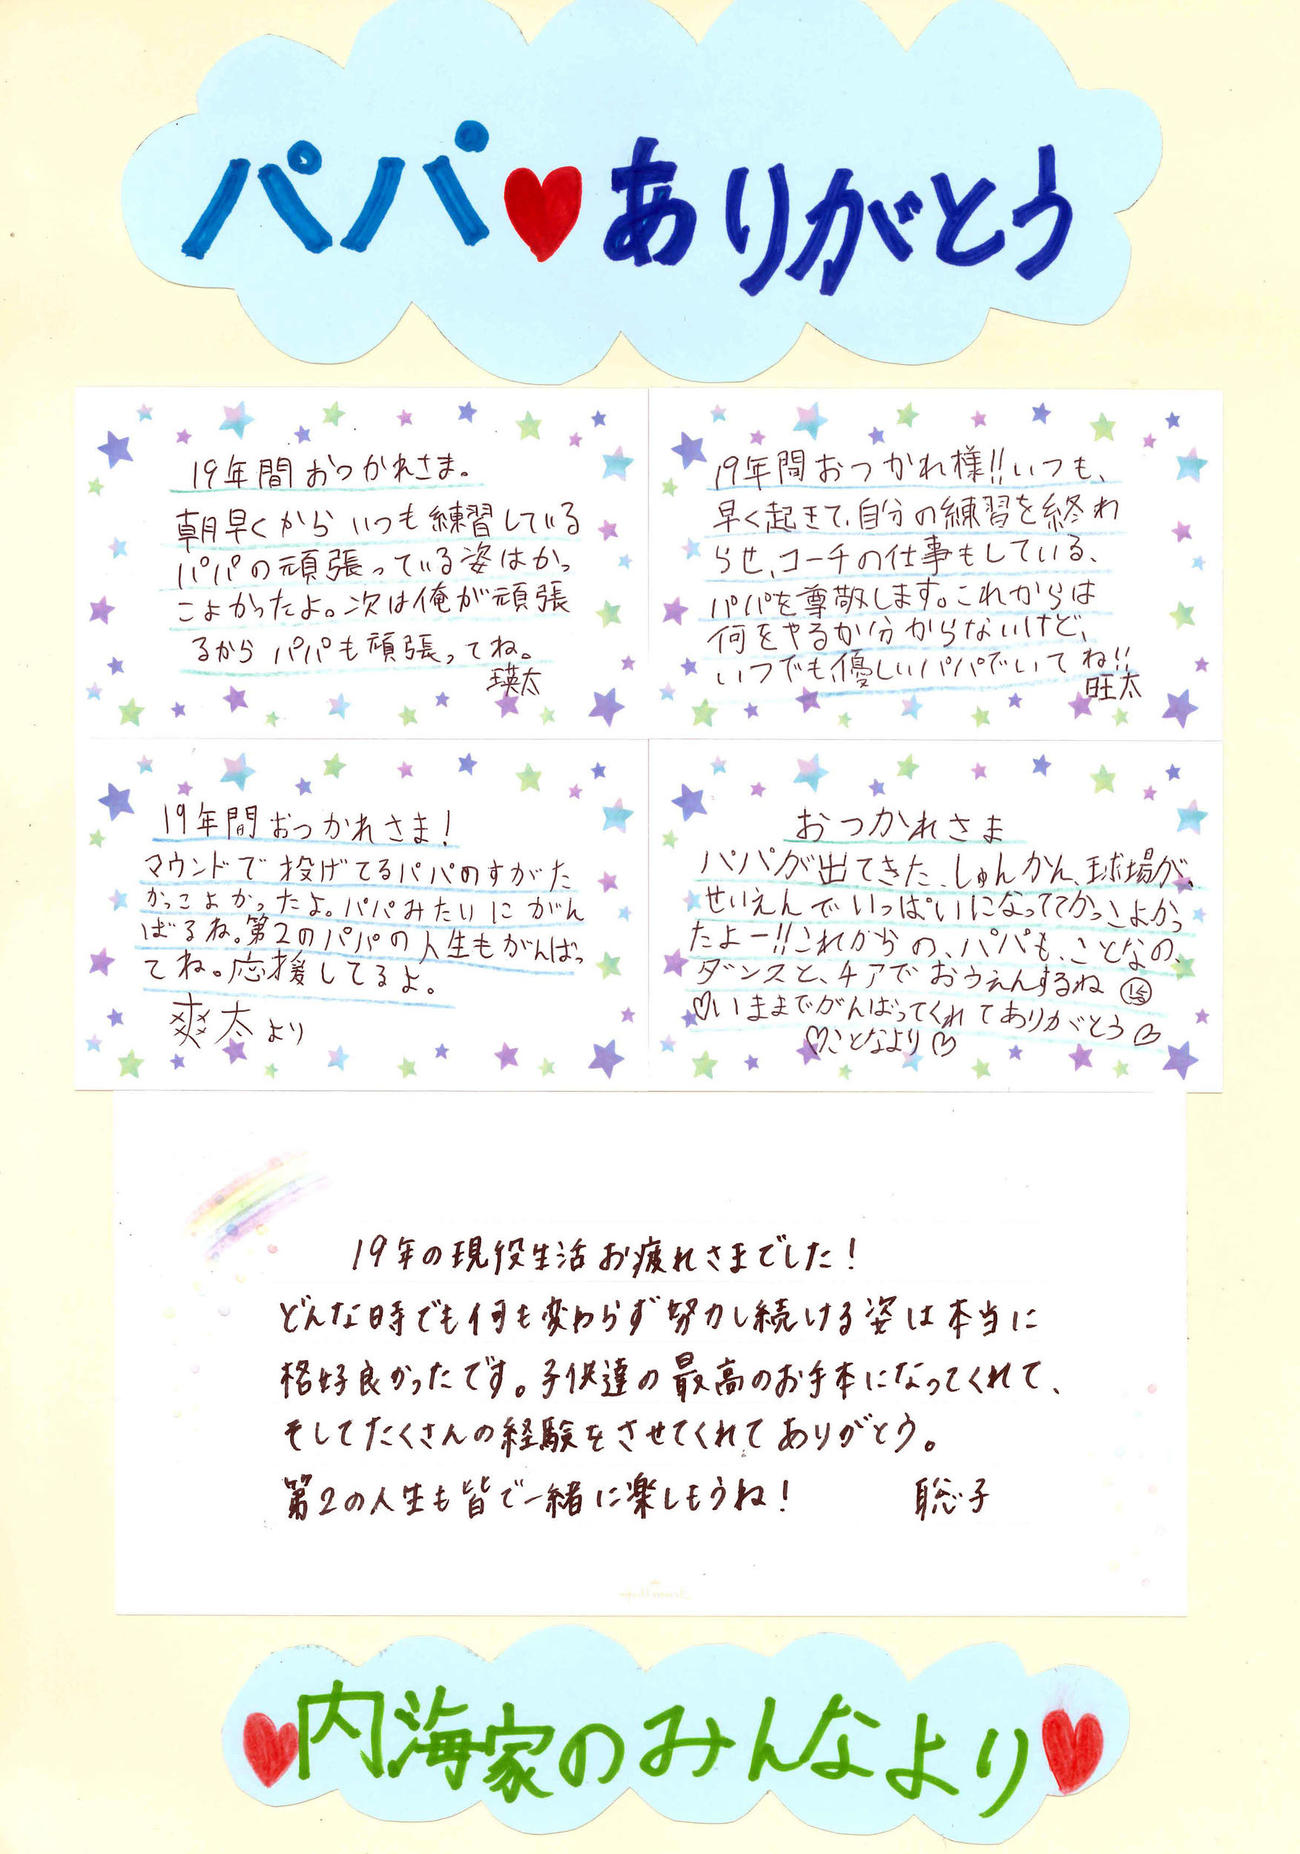 パパ♥ありがとう
19年間おつかれさま。
朝早くからいつも練習している
パパの頑張っている姿はかっ
こよかったよ。次は俺が頑張
るからパパも頑張ってね。
瑛太
19年間おつかれ様!!いつも、
早く起きて、自分の練習を終わ
らせ、コーチの仕事もしている、
パパを尊敬します。これからは
何をやるか分からないけど、
いつでも優しいパパでいてね!!
旺太
19年間おつかれさま!
マウンドで投げてるパパのすがた
かっこよかったよ。パパみたいにがん
ばるね。第2のパパの人生もがんばっ
てね。応援してるよ。
爽太より
おつかれさま
パパが出てきた、しゅんかん、球場が、
せいえんでいっぱいになっててかっこよかっ
たよー!!これからの、パパも、ことなの、
ダンスと、チアでおうえんするね
♡いままでがんばってくれてありがとう♡
♡ことなより♡
19年の現役生活お疲れさまでした!
どんな時でも何も変わらず努力し続ける姿は本当に
格好良かったです。子供達の最高のお手本になってくれて、
そしてたくさんの経験をさせてくれてありがとう。
第2の人生も皆で一緒に楽しもうね!
聡子
♥内海家のみんなより♥